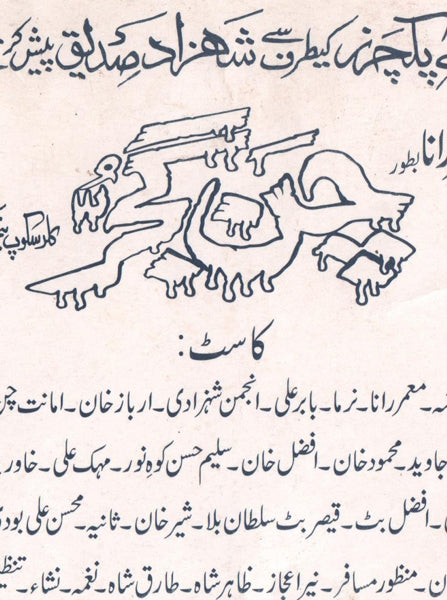 پکچرز کیطرف سے شہزاد صدیق پیش کر
رانا بطور
کلر سکوپ
کاسٹ :
۔ معمر رانا۔ نرما۔ بابر علی۔ انجمن شہزادی۔ ارباز خان۔ امانت چن
جاوید۔ محمود خان۔ افضل خان۔ سلیم حسن کوہِ نور۔ مہک علی۔ خاور
۔ افضل بٹ۔ قیصر بٹ سلطان بلا۔ شیر خان۔ ثانیہ۔ محسن علی بودی
۔ منظور مسافر۔ نیر اعجاز۔ ظاہر شاہ۔ طارق شاہ۔ نغمہ۔ نشاء۔